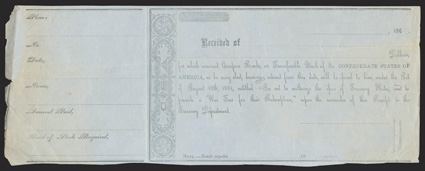 Place:
No.
Date,
Name,
Amount Paid,
Kind of Stock Required,
186
Received of
Dollars,
for which amount Coupon Bonds, or Transferable Stock of the CONFEDERATE STATES OF
AMERICA, as he may elect, bearing interest from this date, will be issued to him, under the Act
of August 19th, 1861, entitled "An Act to authorize the issue of Treasury Notes, and to
provide a War Tax for their Redemption," upon the surrender of this Receipt to the
Treasury Department.